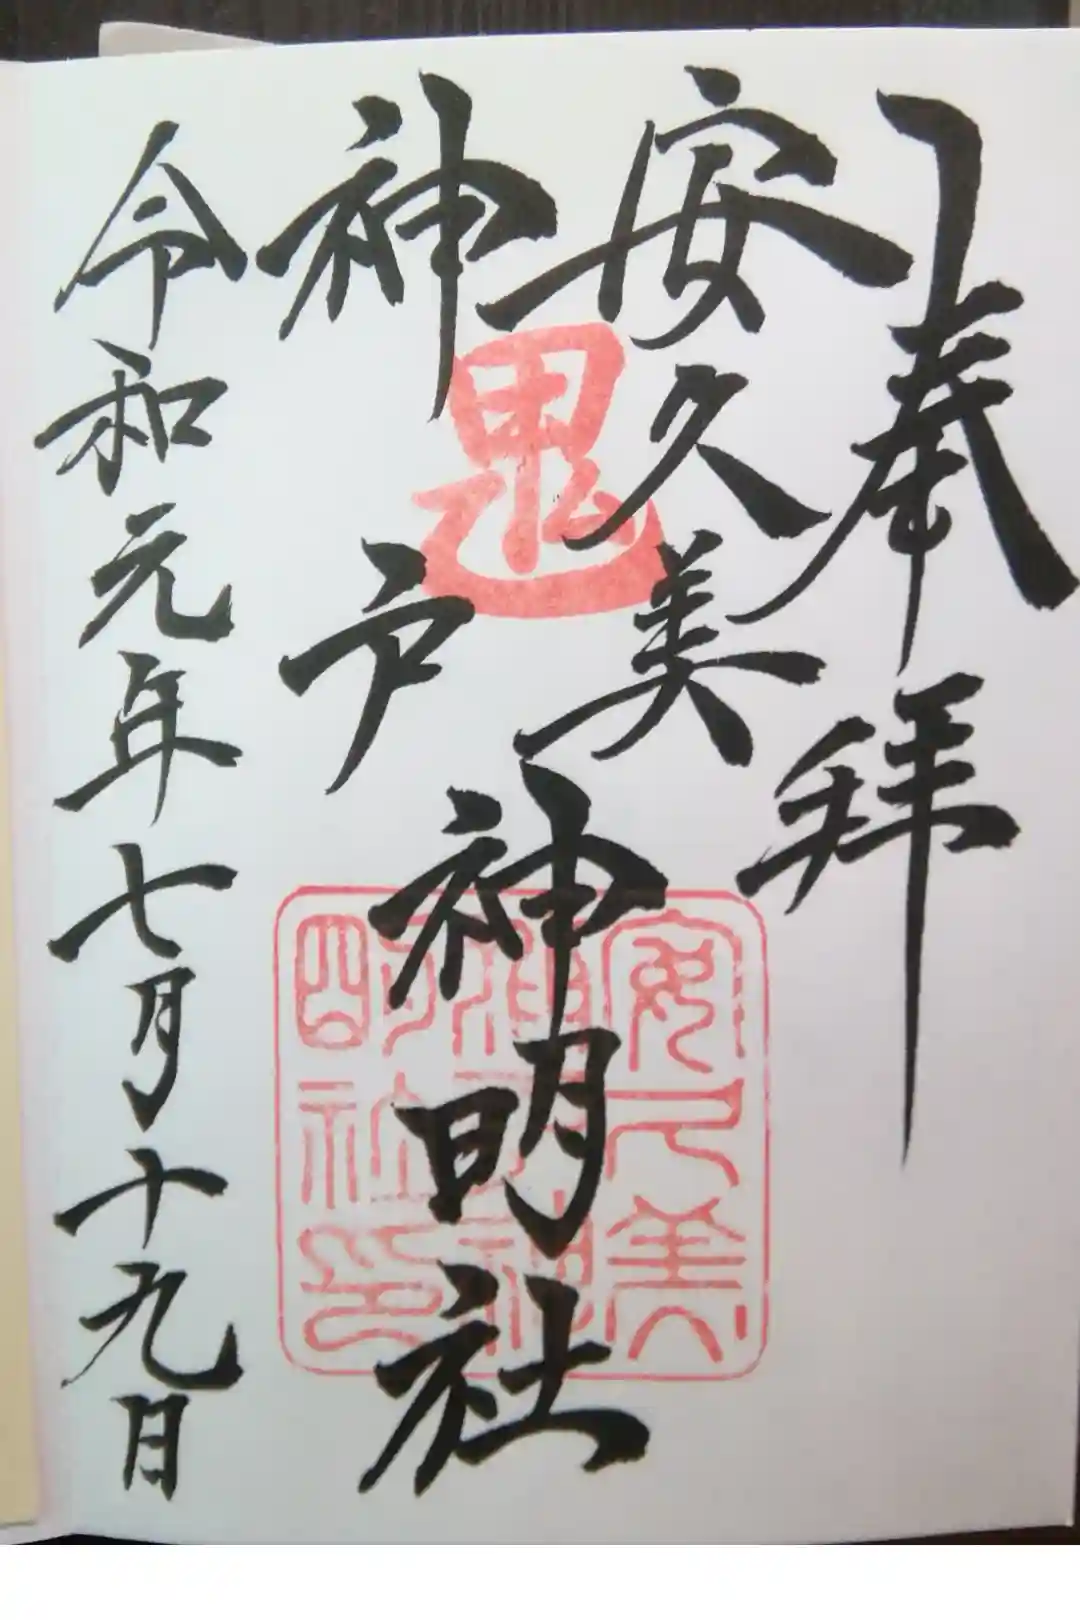 奉拝
安久美
神戸
神明社
令和元年七月十九日
鬼
安久美
神戸神
明社印